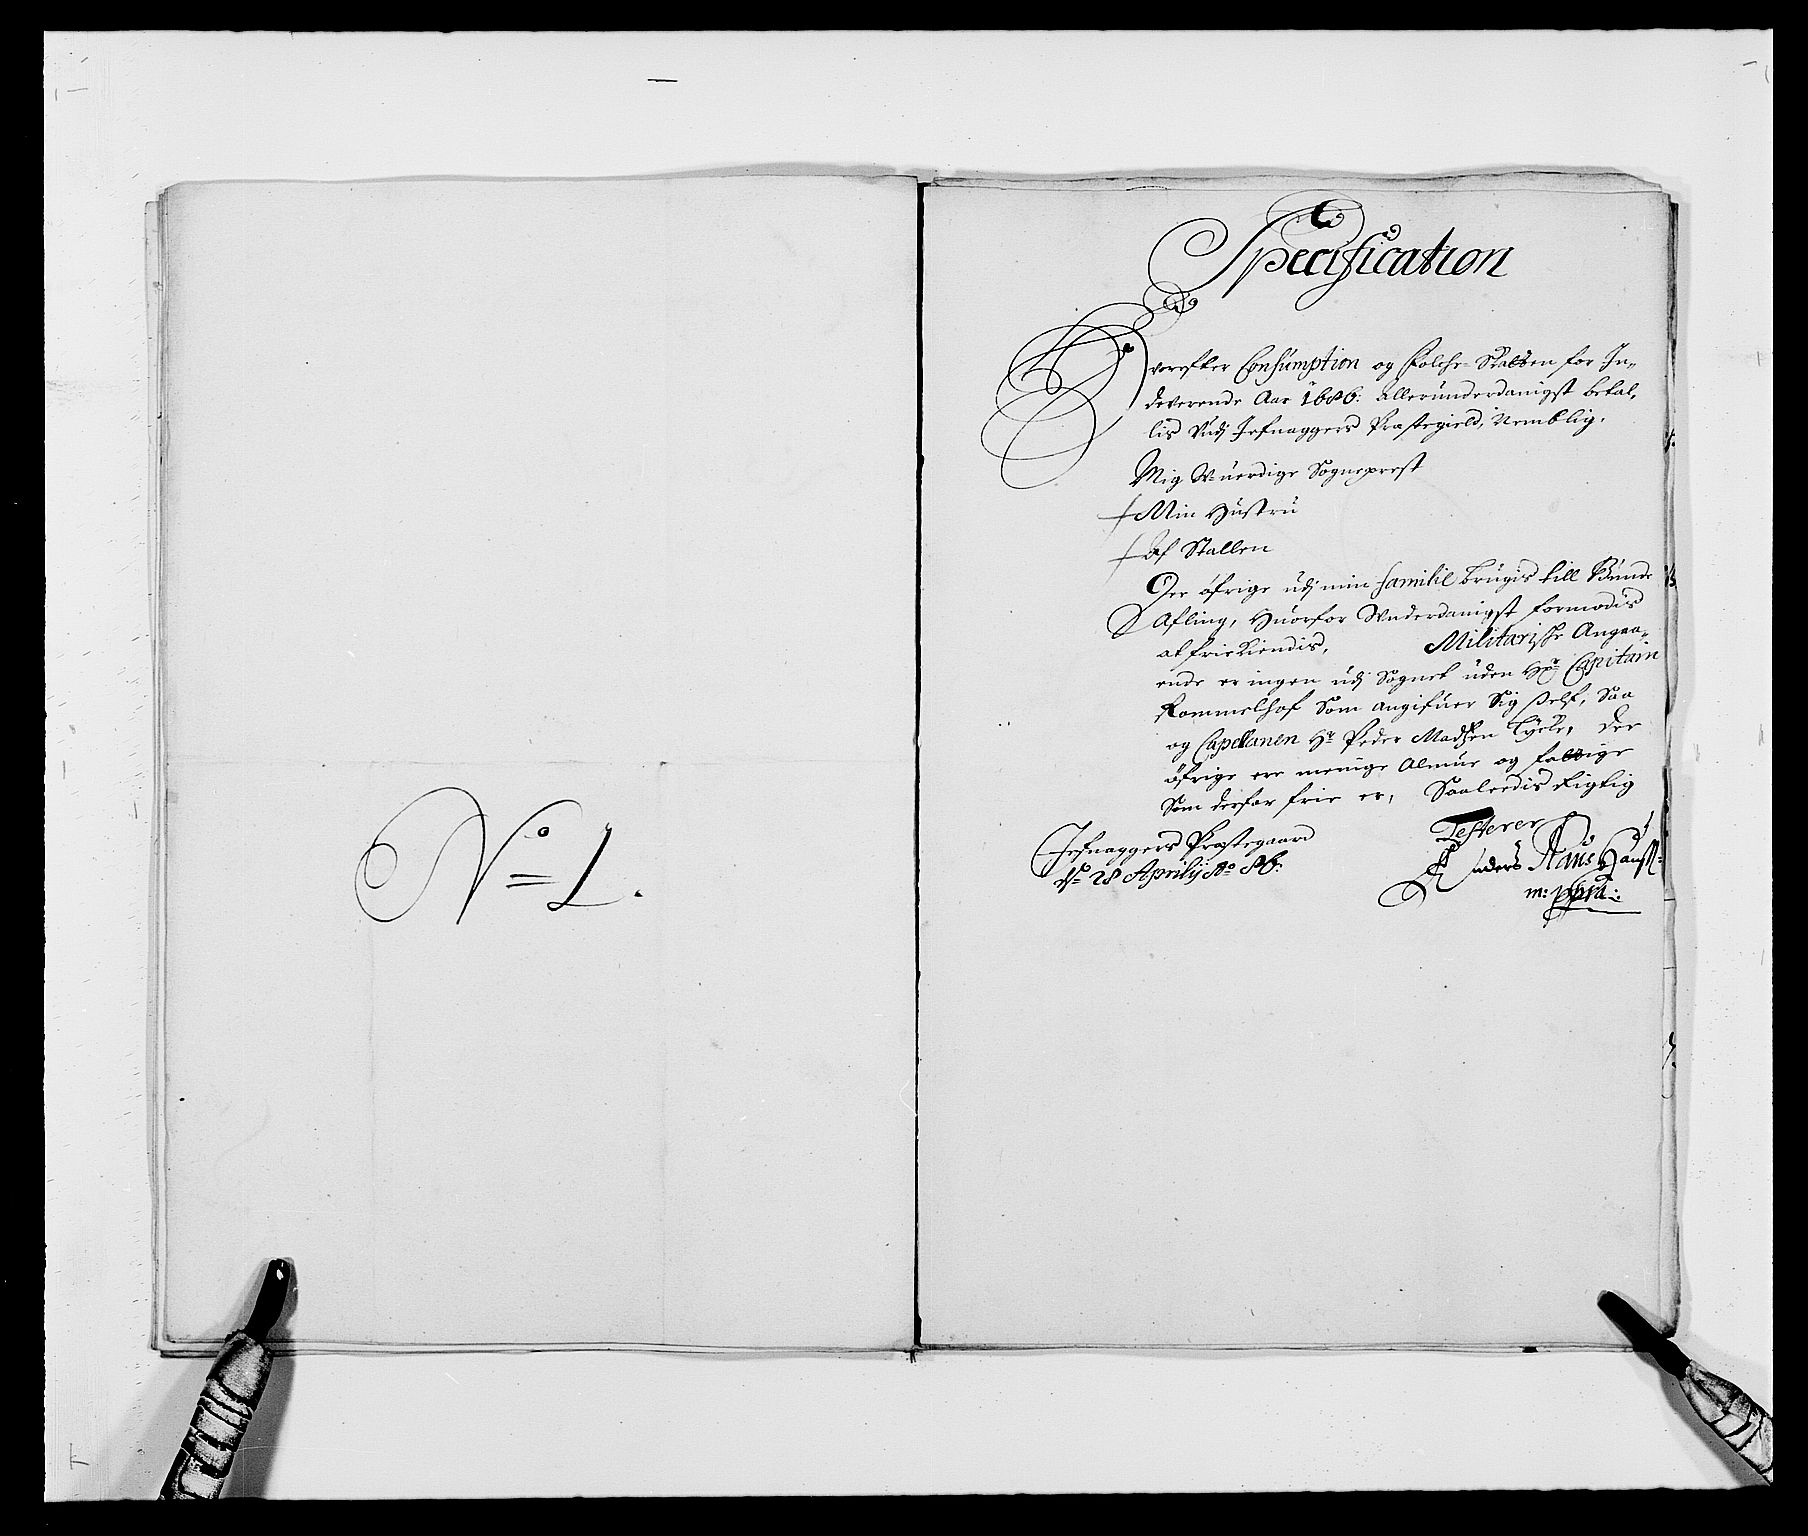 No 1.
Specification
Hvorefter Consumption og Folche Skatten for In-
deverende Aar 1686: allerunderdanigst betal,
lis Udj Jefnaggers Præstegield, Nemblig.
Mig Wuerdige Sogneprest
Min Hustru
Af Stallen
Der öfrige udj min familie brugis till Bunde
Afling, Huorfor Underdanigst formodis
at frie kiendis. Militariske Angaa-
ende er ingen udj Sognet uden Hr Capitain
Rommelhof Som angifuer Sig Self, Saa
og Capellanen Hr Peder Madsen Lycke, Der
öfrige ere menige Almue og fattige
Som derfor frie er, Saaledis Rigtig
Testerer
Jefnaggers Præstegaard
Dn 28 Aprilij Ao 86.
Anders Claus
m: ppria: